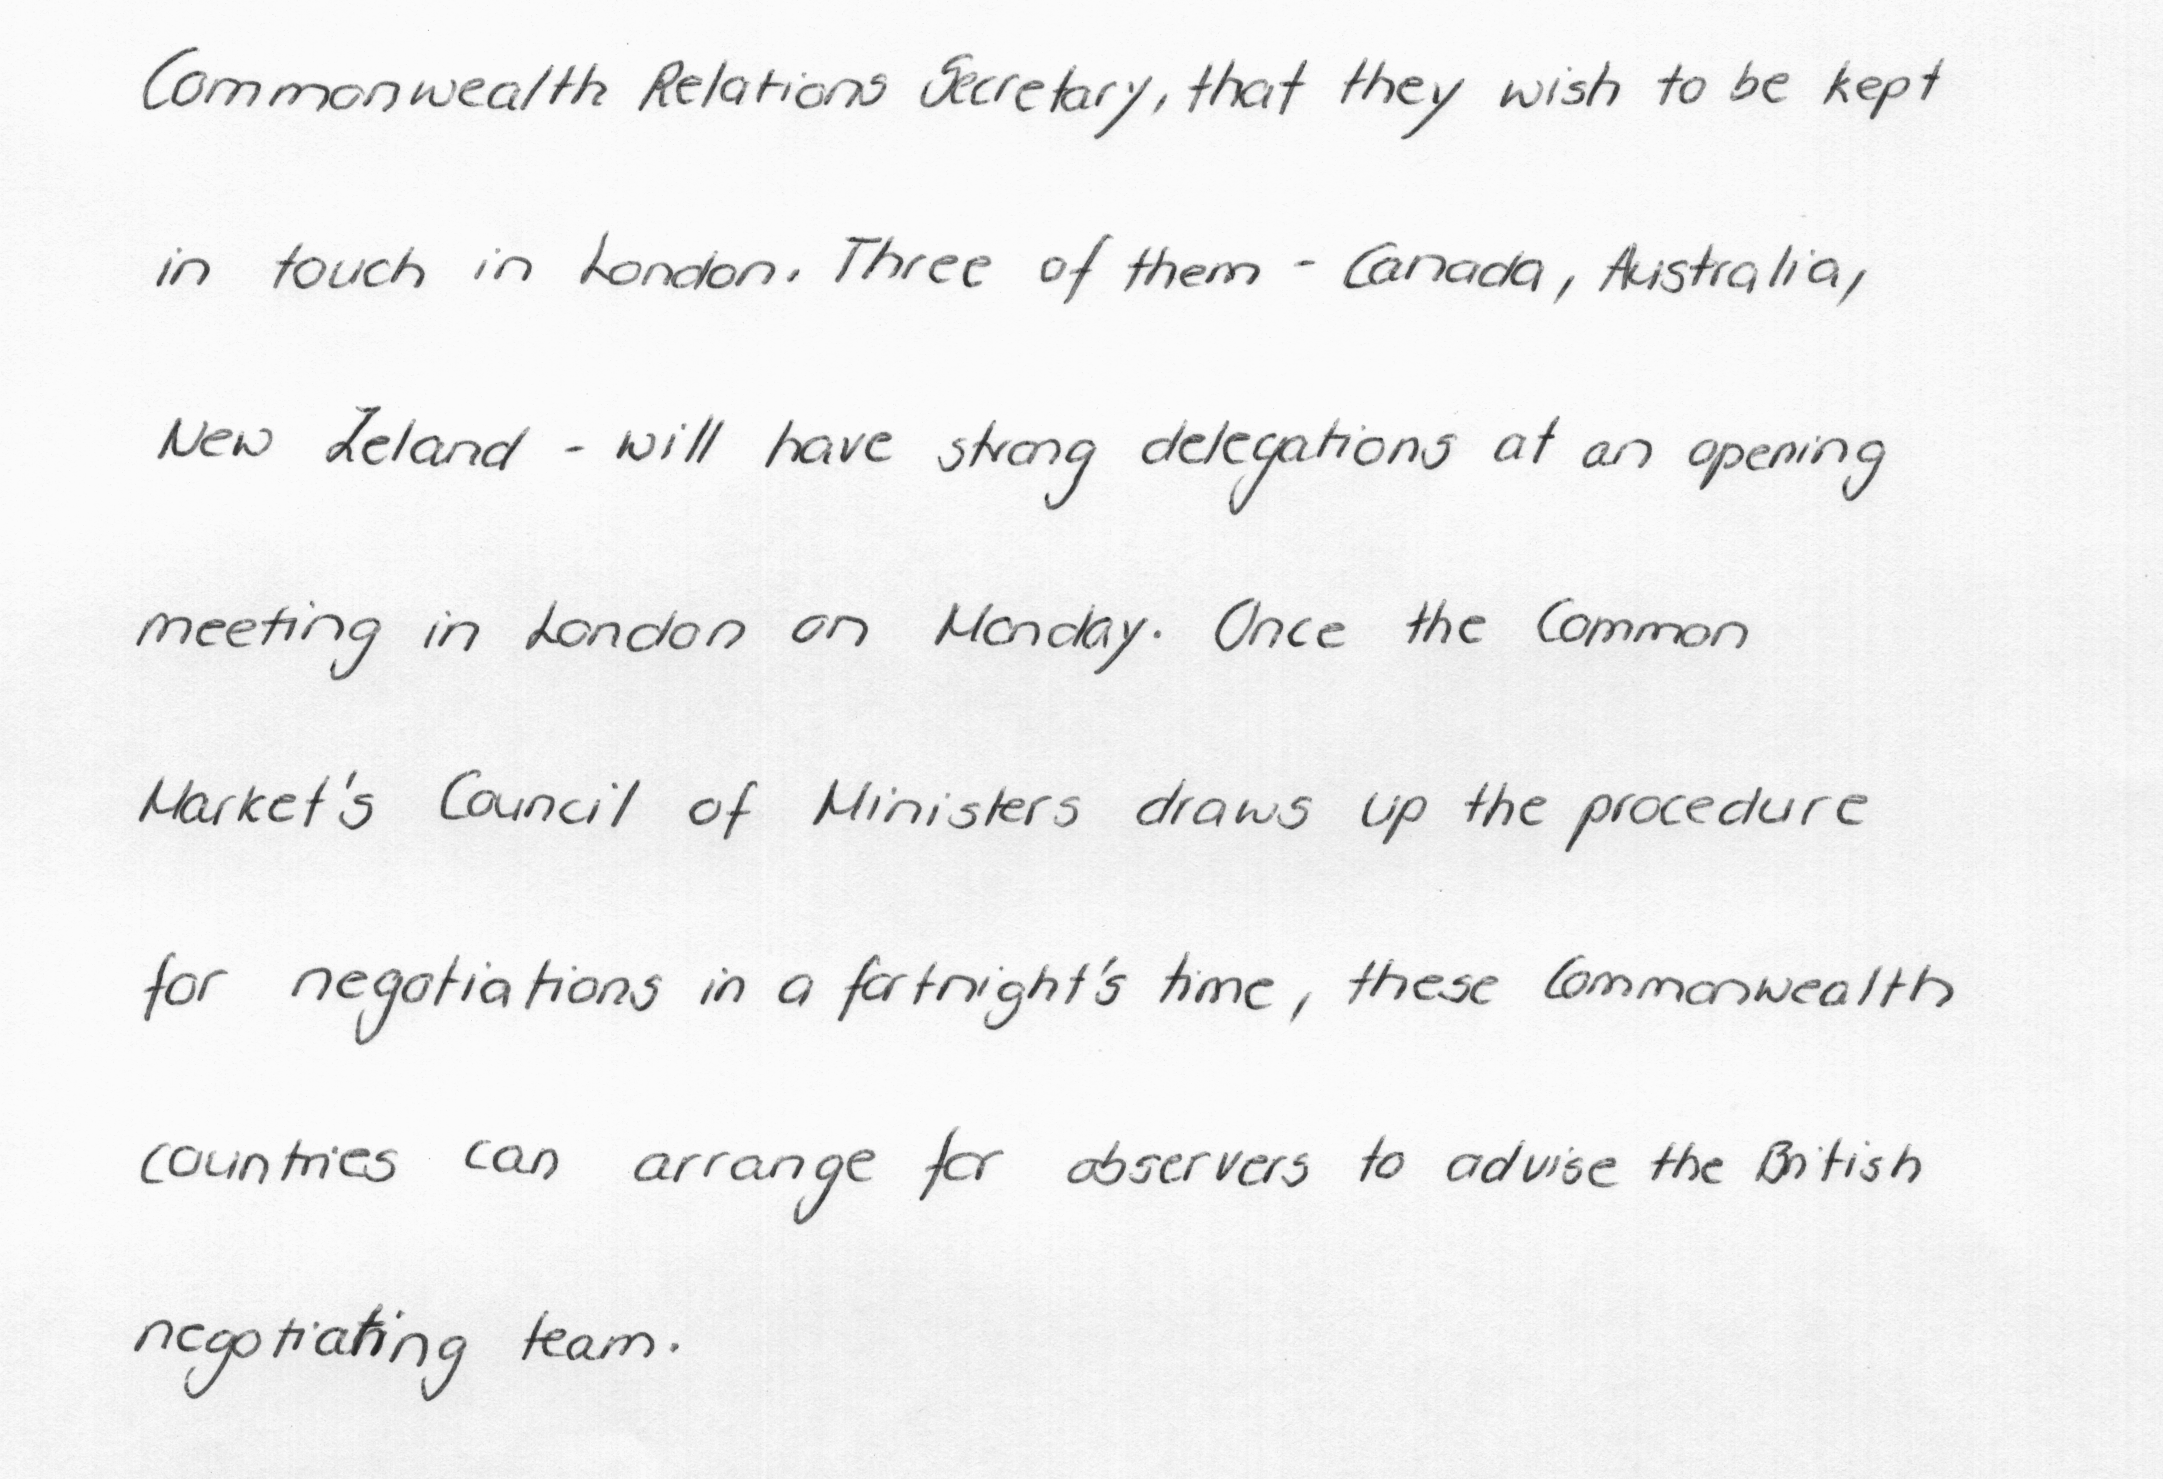 Commonwealth Relations Secretary, that they wish to be kept
in touch in London. Three of them - Canada, Australia,
New Zeland - will have strong delegations at an opening
meeting in London on Monday. Once the Common
Market's Council of Ministers draws up the procedure
for negotiations in a fortnight's time, these Commonwealth
countries can arrange for observers to advise the British
negotiating team.